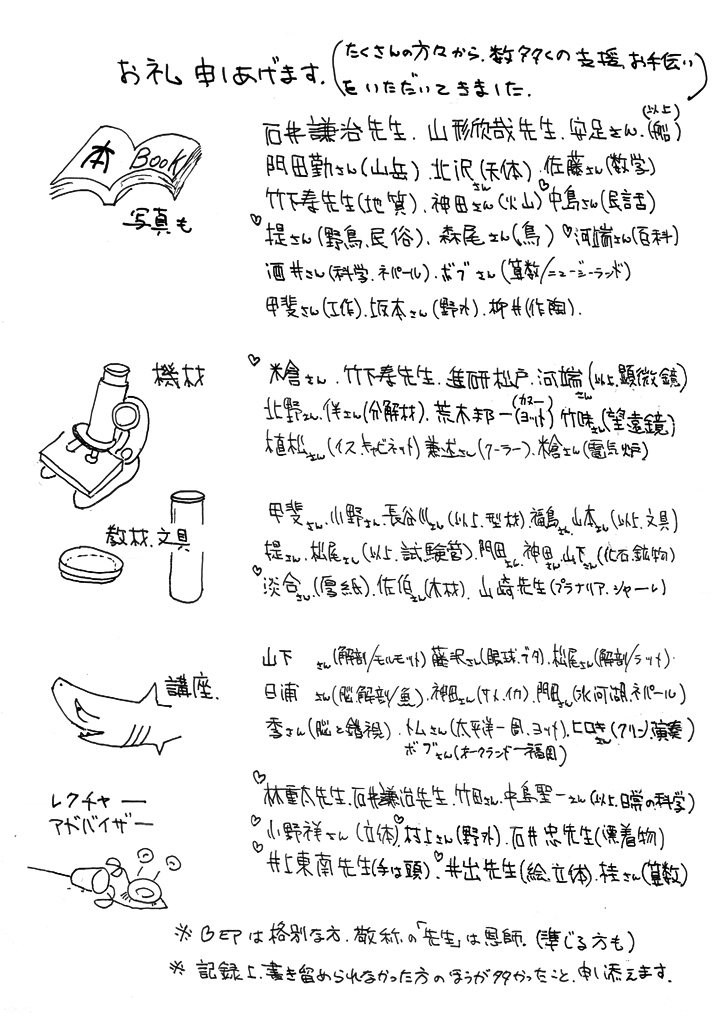 お礼申しあげます.
(たくさんの方々から、数多くの支援、お手伝い
をいただいてきました.)
本 Book
写真も
石井謙治先生.山形欣哉先生.安足さん.(以上船)
門田勤さん(山岳).北沢さん(天体).佐藤さん(数学)
竹下寿先生(地質).神田さん(火山)♡中島さん(民話)
♡提さん(野鳥.民俗).森尾さん(鳥)♡河端さん(百科)
酒井さん(科学.ネパール).ボブさん(算数/ニュージーランド)
甲斐さん(工作).坂本さん(野外).柳井(作陶).
機材
♡米倉さん.竹下寿先生.進研松戸.河端さん(以上.顕微鏡)
北野さん.伴さん(分解材).荒木邦一(カヌーヨット)竹味さん(望遠鏡)
植松さん(イス.キャビネット)兼述さん(クーラー).米倉さん(電気炉)
教材.文具
甲斐さん.小野さん.長谷川さん(以上.型材).福島さん.山本さん(以上.文具)
提さん.松尾さん(以上.試験管).門田さん.神田さん.山下さん(化石.鉱物)
♡淡合さん(厚紙).佐伯さん(木材).山崎先生(プラナリア.シャーレ)
講座.
山下さん(解剖/モルモット)藤沢さん(眼球.ブタ).松尾さん(解剖/ラット).
日浦さん(脳.解剖/魚).神田さん(サメ.イカ).門田さん(氷河湖.ネパール)
李さん(脳と錯視).トムさん(太平洋一周.ヨット).ヒロキさん(クリン演奏)
ボブさん(オークランドー福岡)
レクチャー
アドバイザー
♡林重太先生.石井謙治先生.竹田さん.中島聖一さん(以上.日常の科学)
♡小野祥さん(立体)♡村上さん(野外).石井忠先生(漂着物)
♡井上東南先生(手は頭).♡井出先生(絵.立体).桂さん(算数)
※ BEPは格別な方.敬称の「先生」は恩師.(準じる方も)
※ 記録上.書き留められなかった方のほうが多かったこと.申し添えます.